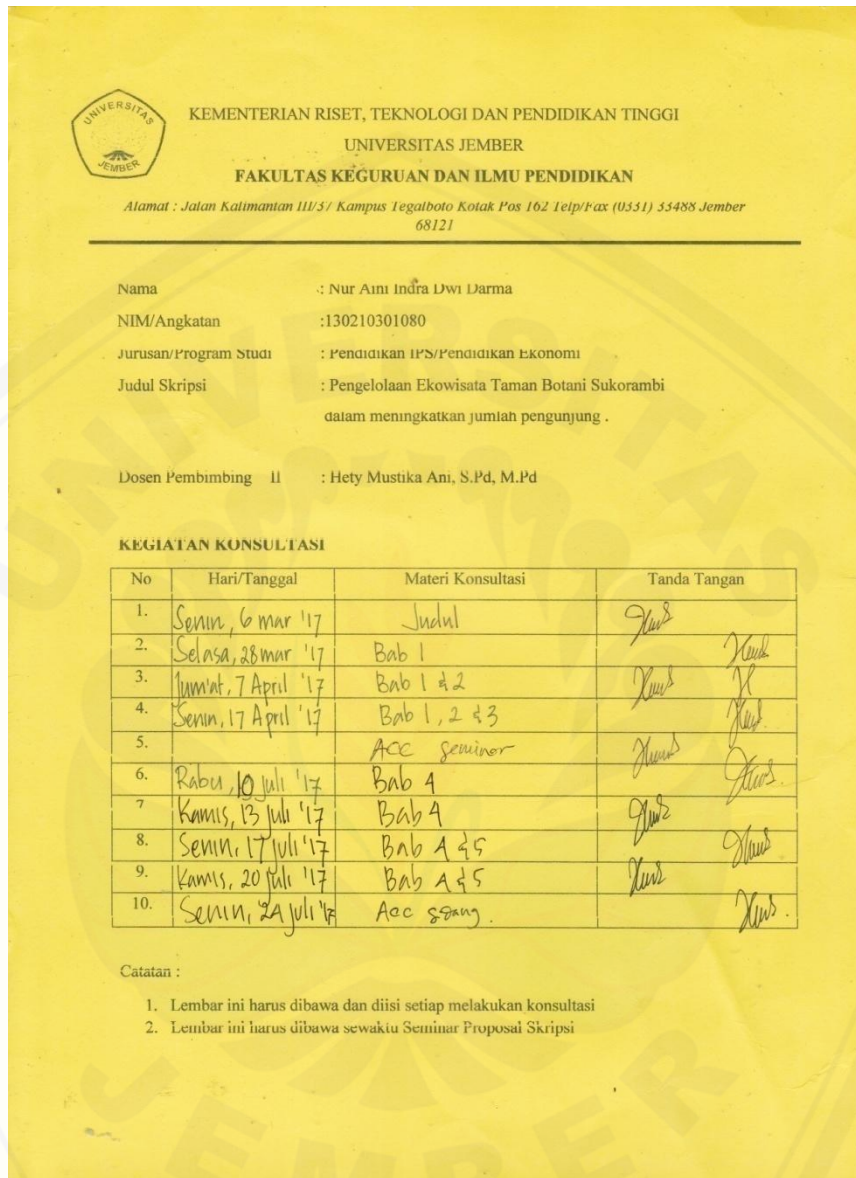 UNIVERSITAS
JEMBER
KEMENTERIAN RISET, TEKNOLOGI DAN PENDIDIKAN TINGGI
UNIVERSITAS JEMBER
FAKULTAS KEGURUAN DAN ILMU PENDIDIKAN
Alamat : Jalan Kalimantan III/37 Kampus Tegalboto Kotak Pos 162 Telp/Fax (0331) 33488 Jember
68121
Nama : Nur Aini Indra Dwi Darma
NIM/Angkatan :130210301080
Jurusan/Program Studi : Pendidikan IPS/Pendidikan Ekonomi
Judul Skripsi : Pengelolaan Ekowisata Taman Botani Sukorambi
dalam meningkatkan jumlah pengunjung .
Dosen Pembimbing II : Hety Mustika Ani, S.Pd, M.Pd
KEGIATAN KONSULTASI
No Hari/Tanggal Materi Konsultasi Tanda Tangan
1. Senin, 6 mar '17 Judul
2. Selasa, 28 mar '17 Bab 1
3. Jum'at, 7 April '17 Bab 1 & 2
4. Senin, 17 April '17 Bab 1, 2 & 3
5. ACC seminar
6. Rabu, 10 juli '17 Bab 4
7 Kamis, 13 juli '17 Bab 4
8. Senin, 17 juli '17 Bab 4 & 5
9. Kamis, 20 juli '17 Bab 4 & 5
10. Senin, 24 juli '17 Acc sidang.
Catatan :
1. Lembar ini harus dibawa dan diisi setiap melakukan konsultasi
2. Lembar ini harus dibawa sewaktu Seminar Proposal Skripsi
UNIVERSITAS
JEMBER